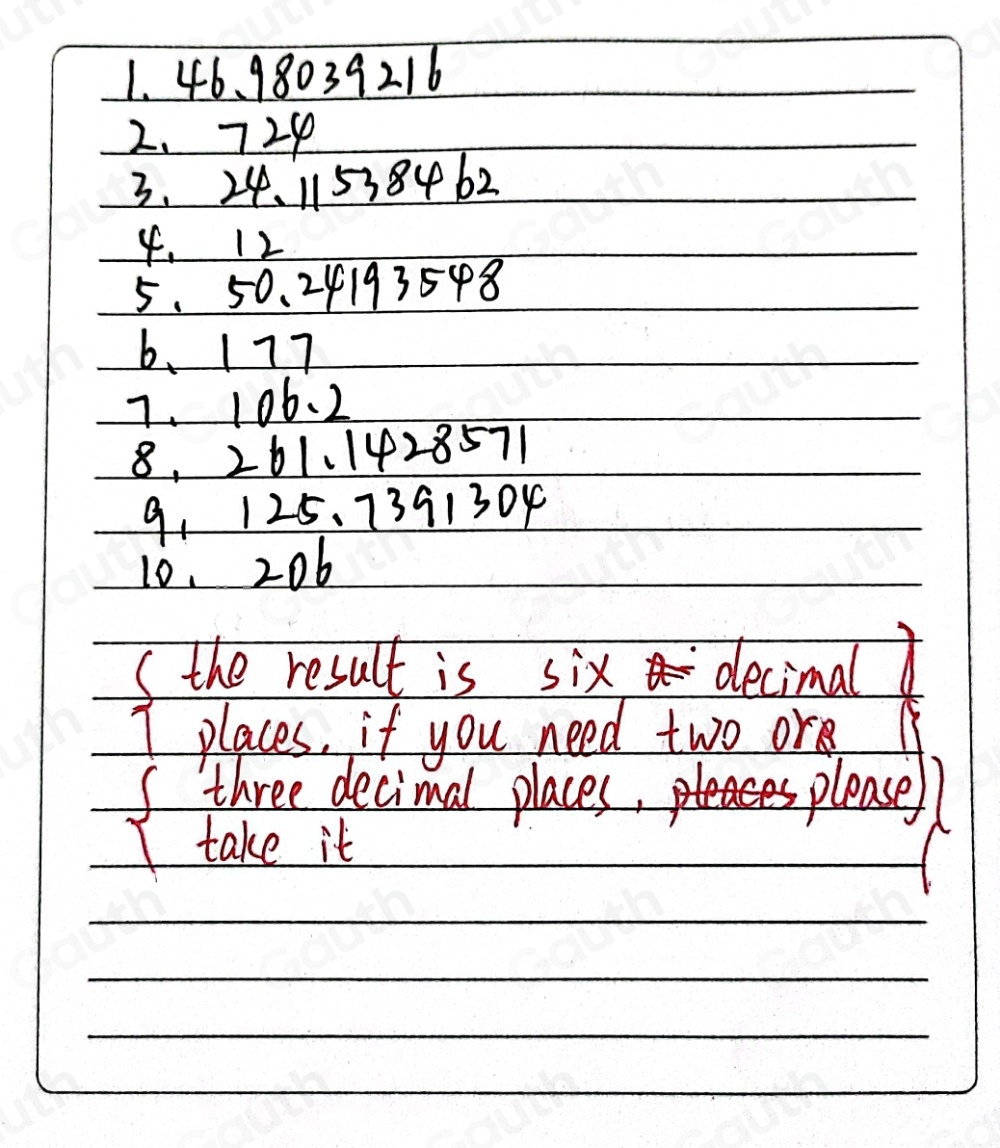 1. 46.98039216
2. 724
3. 24.11538462
4. 12
5. 50.24193548
6. 177
7. 106.2
8. 261.1428571
9. 125.7391304
10. 206
{ the result is six decimal }
{ places. if you need two or }
{ three decimal places, pleaces please }
{ take it